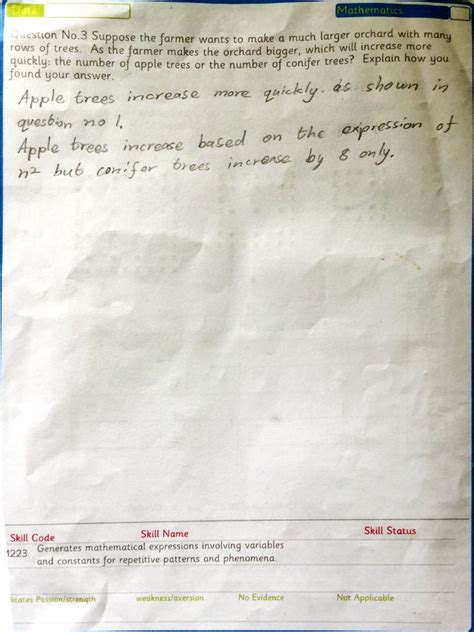 Date
Mathematics
Question No.3 Suppose the farmer wants to make a much larger orchard with many
rows of trees. As the farmer makes the orchard bigger, which will increase more
quickly: the number of apple trees or the number of conifer trees? Explain how you
found your answer.
Apple trees increase more quickly. as shown in
question no 1.
Apple trees increase based on the expression of
n² but conifer trees increase by 8 only.
Skill Code
Skill Name
Skill Status
1223
Generates mathematical expressions involving variables
and constants for repetitive patterns and phenomena.
licates Passion/strength
weakness/aversion
No Evidence
Not Applicable